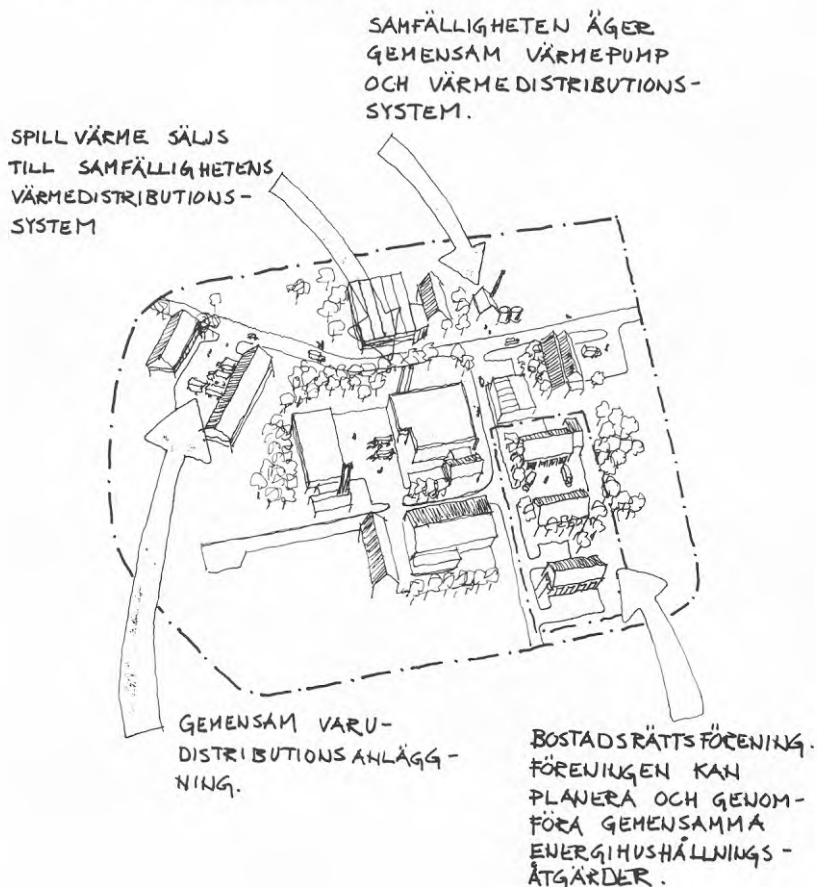 SAMFÄLLIGHETEN ÄGER
GEMENSAM VÄRMEPUMP
OCH VÄRMEDISTRIBUTIONS-
SYSTEM.
SPILLVÄRME SÄLJS
TILL SAMFÄLLIGHETENS
VÄRMEDISTRIBUTIONS-
SYSTEM
GEMENSAM VARU-
DISTRIBUTIONSANLÄGG-
NING.
BOSTADSRÄTTSFÖRENING.
FÖRENINGEN KAN
PLANERA OCH GENOM-
FÖRA GEMENSAMMA
ENERGIHUSHÅLLNINGS-
ÅTGÄRDER.